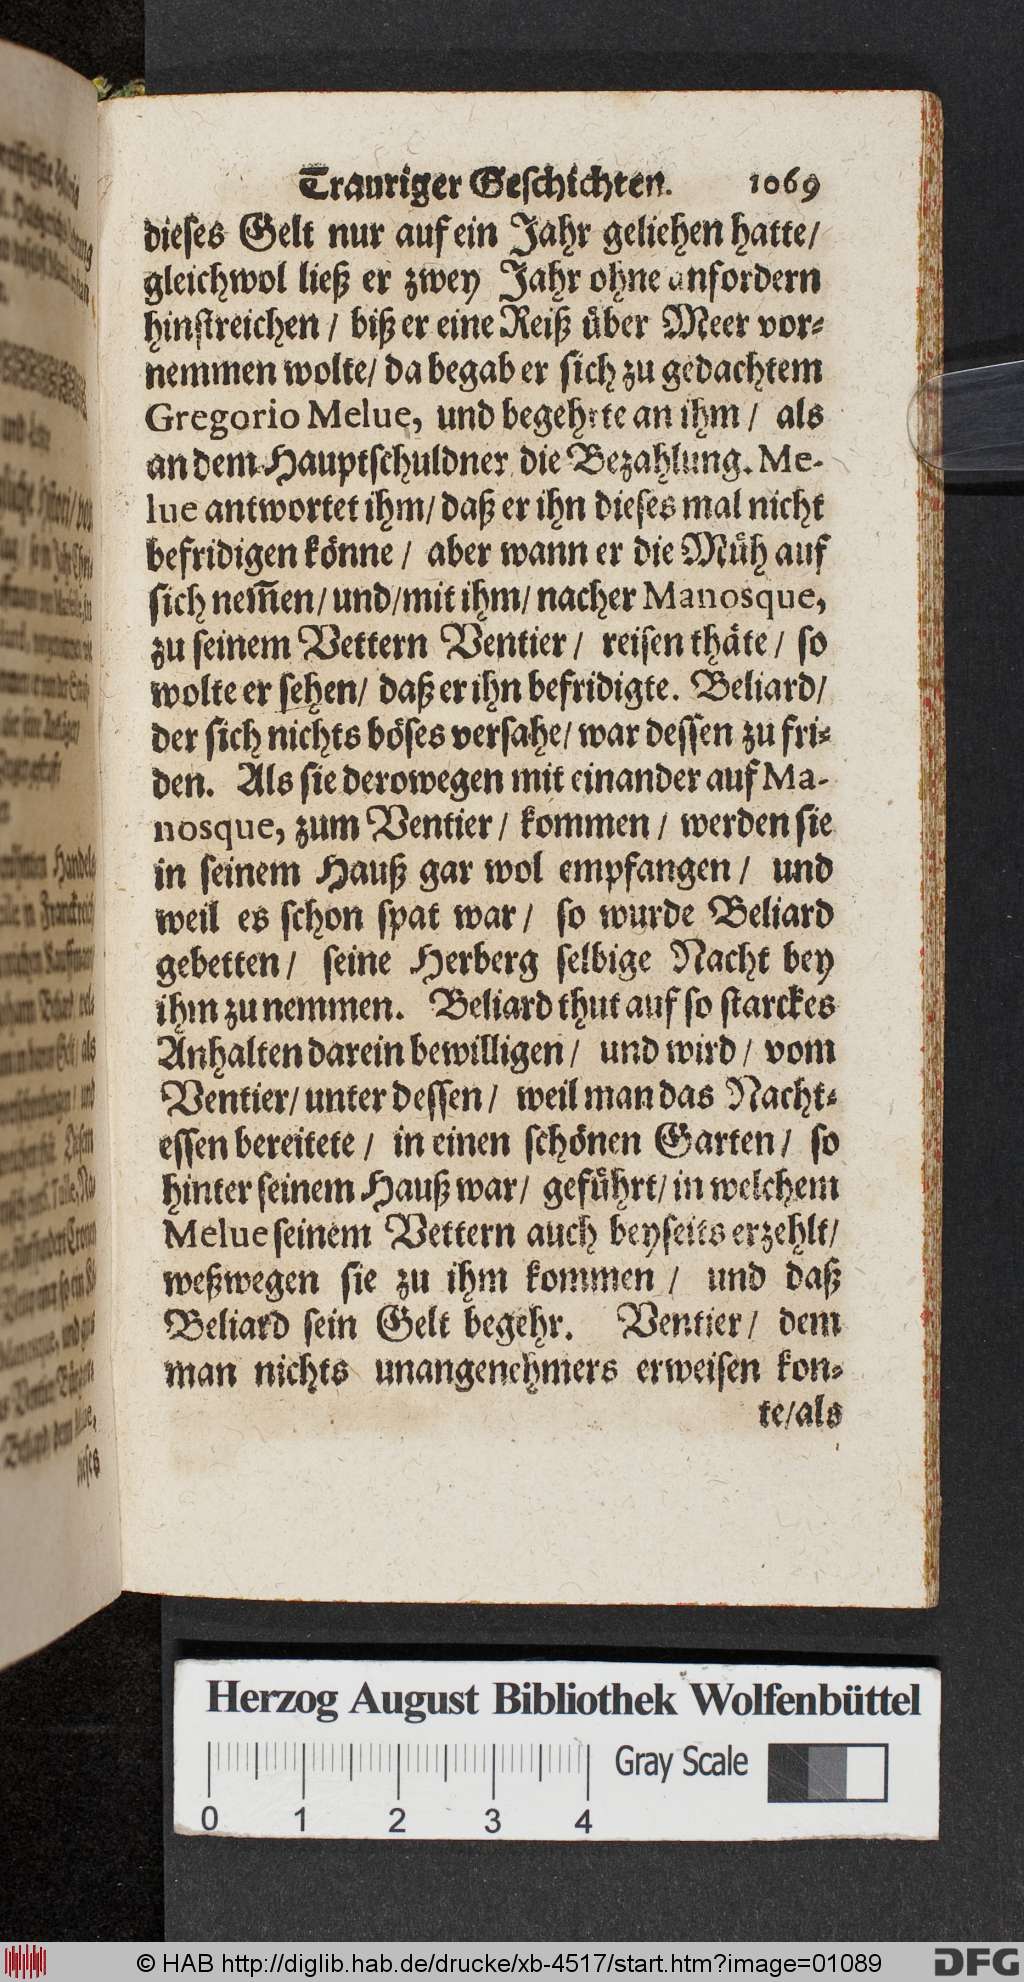 Trauriger Geschichten. 1069
dieses Gelt nur auf ein Jahr geliehen hatte/
gleichwol ließ er zwey Jahr ohne anfordern
hinstreichen / biß er eine Reiß über Meer vor-
nemmen wolte/ da begab er sich zu gedachtem
Gregorio Melue, und begehrte an ihm / als
an dem Hauptschuldner die Bezahlung. Me-
lue antwortet ihm/ daß er ihn dieses mal nicht
befridigen könne / aber wann er die Müh auf
sich nem̄en/ und/mit ihm/ nacher Manosque,
zu seinem Vettern Ventier / reisen thäte / so
wolte er sehen/ daß er ihn befridigte. Beliard/
der sich nichts böses versahe/ war dessen zu fri-
den. Als sie derowegen mit einander auf Ma-
nosque, zum Ventier / kommen / werden sie
in seinem Hauß gar wol empfangen / und
weil es schon spat war / so wurde Beliard
gebetten / seine Herberg selbige Nacht bey
ihm zu nemmen. Beliard thut auf so starckes
Anhalten darein bewilligen / und wird / vom
Ventier/ unter dessen / weil man das Nacht-
essen bereitete / in einen schönen Garten / so
hinter seinem Hauß war/ geführt/ in welchem
Melue seinem Vettern auch beyseits erzehlt/
weßwegen sie zu ihm kommen / und daß
Beliard sein Gelt begehr. Ventier / dem
man nichts unangenehmers erweisen kon-
te/als
Herzog August Bibliothek Wolfenbüttel
Gray Scale
0 1 2 3 4
© HAB http://diglib.hab.de/drucke/xb-4517/start.htm?image=01089
DFG